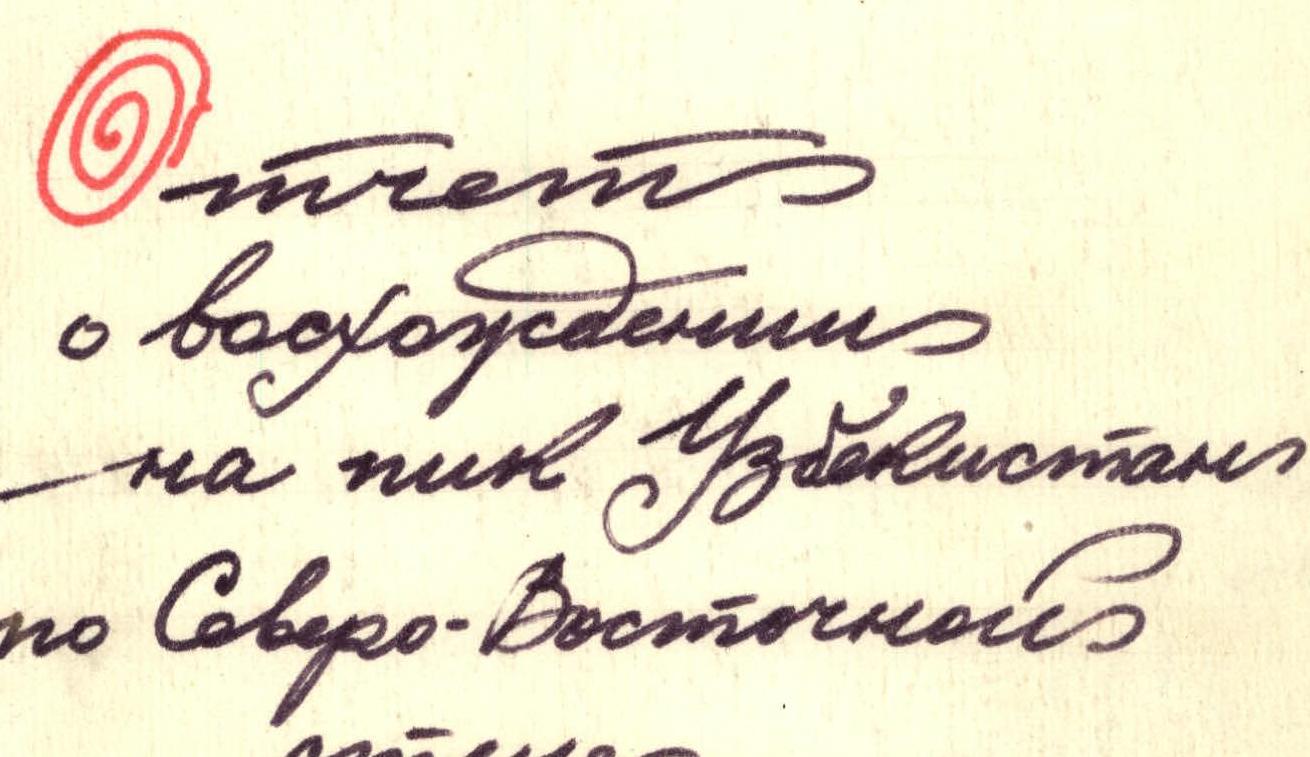 Отчет
о восхождении
на пик Узбекистан
по Северо-Восточной
стене